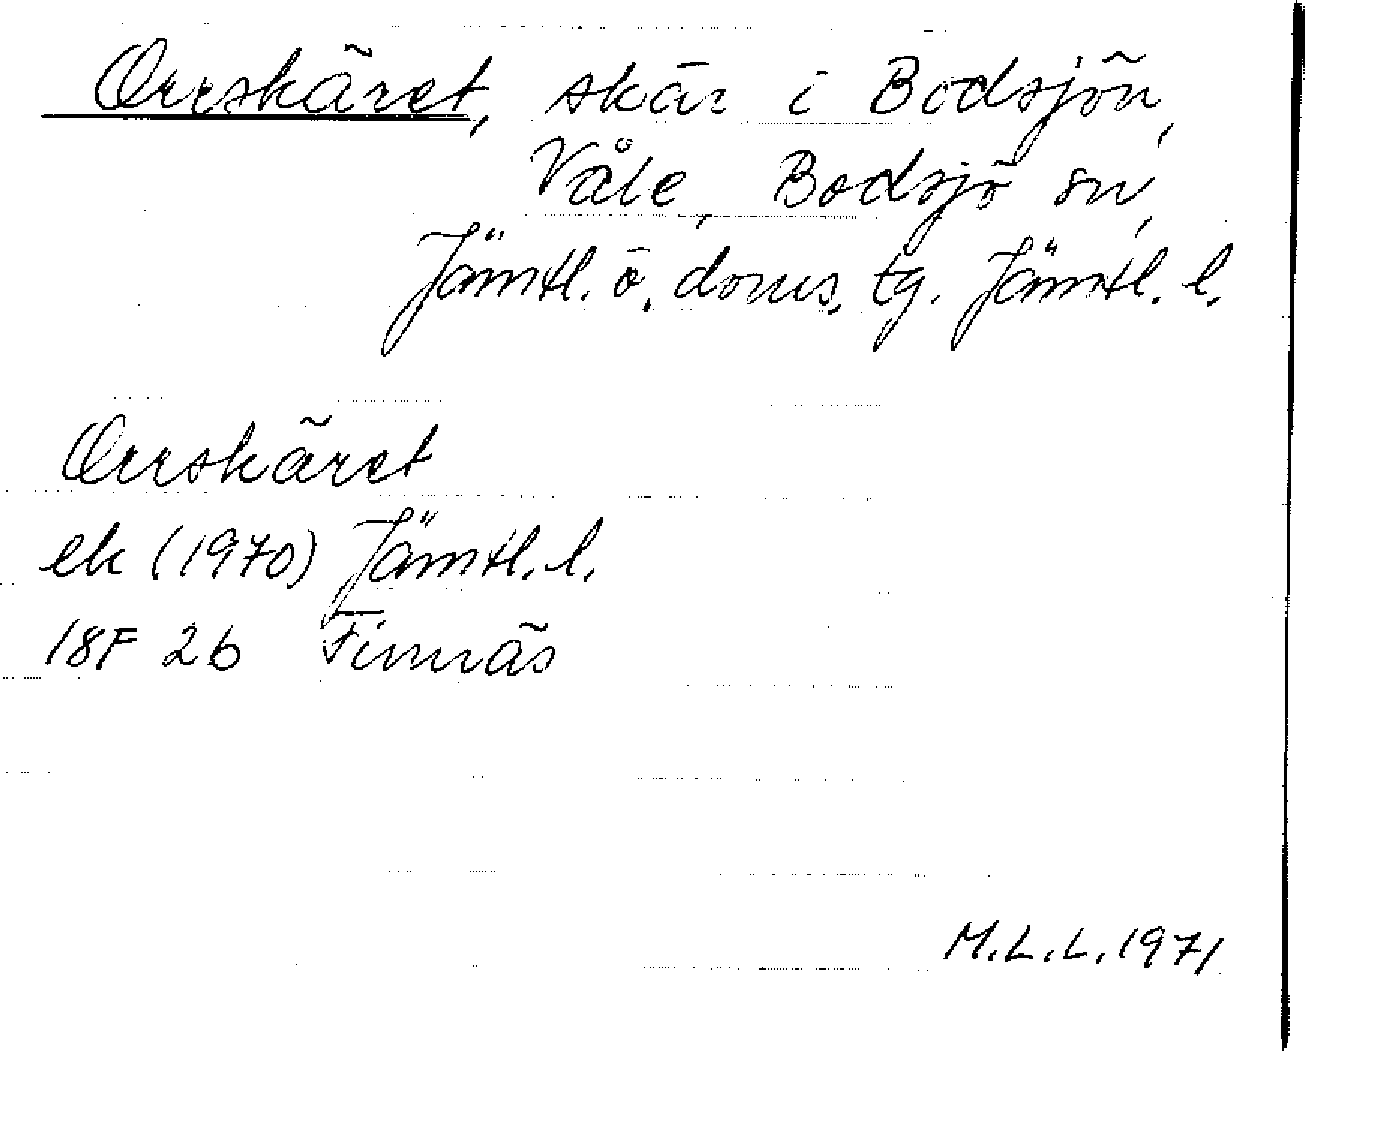 Orrskäret, skär i Bodsjön,
Våle, Bodsjö sn,
Jämtl. ö. doms. tg. Jämtl. l.
Orrskäret
ek (1970) Jämtl. l.
18F 2b Finnäs
M.L.L. 1971